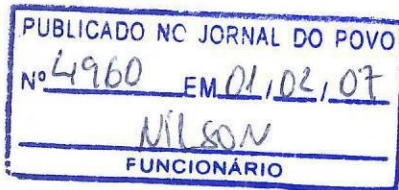 PUBLICADO NO JORNAL DO POVO
Nº 4960 EM 01, 02, 07
NILSON
FUNCIONÁRIO